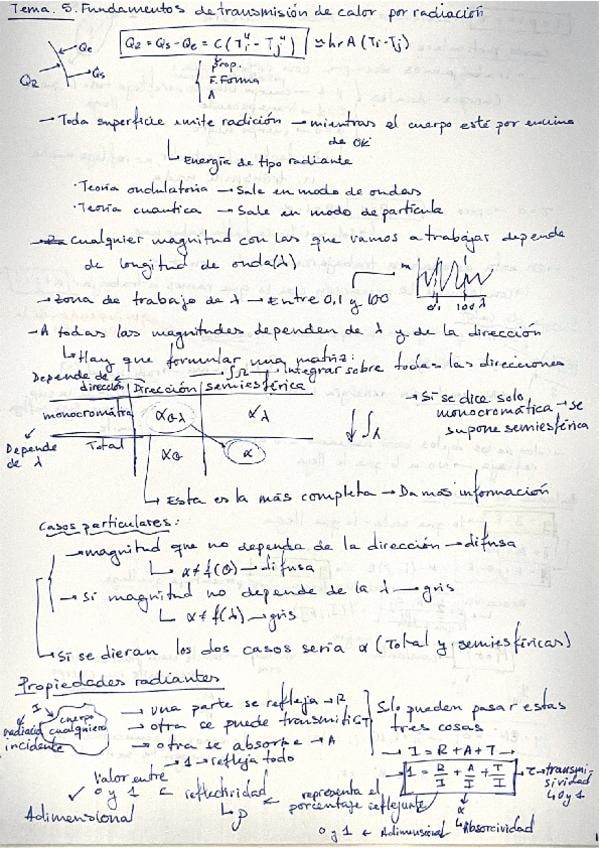 Tema. 5. Fundamentos de transmisión de calor por radiación
Qe
Q2
Qs
Q2 = Qs - Qe = C (Ti⁴ - Tj⁴) ≃ hr A (Ti - Tj)
Prop.
F. Forma
A
→ Toda superficie emite radición → mientras el cuerpo esté por encima
de 0K
↳ Energía de tipo radiante
· Teoria ondulatoria → Sale en modo de ondas
· Teoria cuantica → Sale en modo de particula
→ Cualquier magnitud con las que vamos a trabajar depende
de longitud de onda (λ)
→ Zona de trabajo de λ → Entre 0,1 y 100
m
0,1 100 λ
→ A todas las magnitudes dependen de λ y de la dirección
↳ Hay que formular una matriz:
Depende de dirección
∫Ω → Integrar sobre todas las direcciones
Dirección | semiesférica
monocromática | αθλ | αλ
Total | αθ | α
Depende de λ
↓ ∫λ
→ Si se dice solo
monocromática → se
supone semiesférica
↳ Esta es la más completa → Da más información
Casos particulares:
→ magnitud que no dependa de la dirección → difusa
↳ α ≠ f(θ) → difusa
→ Si magnitud no depende de la λ → gris
↳ α ≠ f(λ) → gris
↳ Si se dieran los dos casos seria α (Total y semiesféricas)
Propiedades radiantes
I
radiación
incidente
cuerpo
cualquiera
→ una parte se refleja → R
→ otra se puede transmitir → T
→ otra se absorbe → A
Solo pueden pasar estas
tres cosas
→ I = R + A + T →
→ 1 → refleja todo
1 = R/I + A/I + T/I
τ → transmi-
sividad
↳ 0 y 1
Valor entre
0 y 1 ← reflectividad
↳ ρ
representa el
porcentaje reflejante
α
↳ Absorcividad
Adimensional
0 y 1 ← Adimensional